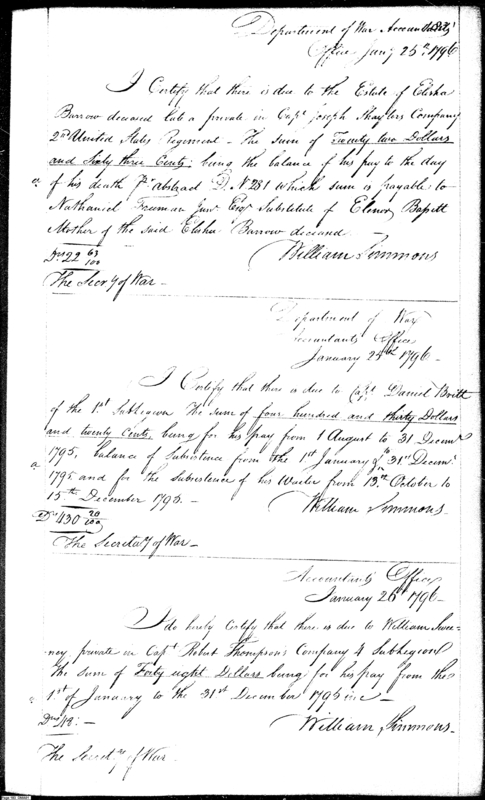 Department of War Accountants
Office Jany 25th 1796
I Certify that there is due to the Estate of Elisha
Barrow deceased late a private in Capt Joseph Shaylers Company
2nd United States Regiment - The sum of Twenty two Dollars
and Sixty three Cents; being the balance of his pay to the day
of his death Pr abstract D, No 281 which sum is payable to
Nathaniel Freeman Junr Esqr Substitute of Elenor Bassett
Mother of the said Elisha Barrow deceased
Drs 22 63/100
William Simmons
The Secry of War -
Department of War
Accountants Office
January 25th 1796 -
I Certify that there is due to Capt Daniel Britt
of the 1st SubLegion The Sum of four hundred and thirty Dollars
and twenty Cents, being for his pay from 1 August to 31 Decemr
1795, balance of Subsistence from the 1st January to 31st Decemr
1795 and for the Subsistence of his Waiter from 13th October to
15th December 1795. -
Drs 430 20/100
William Simmons
The Secretary of War -
Accountants Office
January 26th 1796 -
I do hereby Certify that there is due to William Swee-
ney private in Capt Robert Thompson's Company 4 SubLegion
The Sum of Forty eight Dollars being for his pay from the
1st of January to the 31st December 1795 inc -
Drs 48: -
William Simmons -
The Secrety of War -